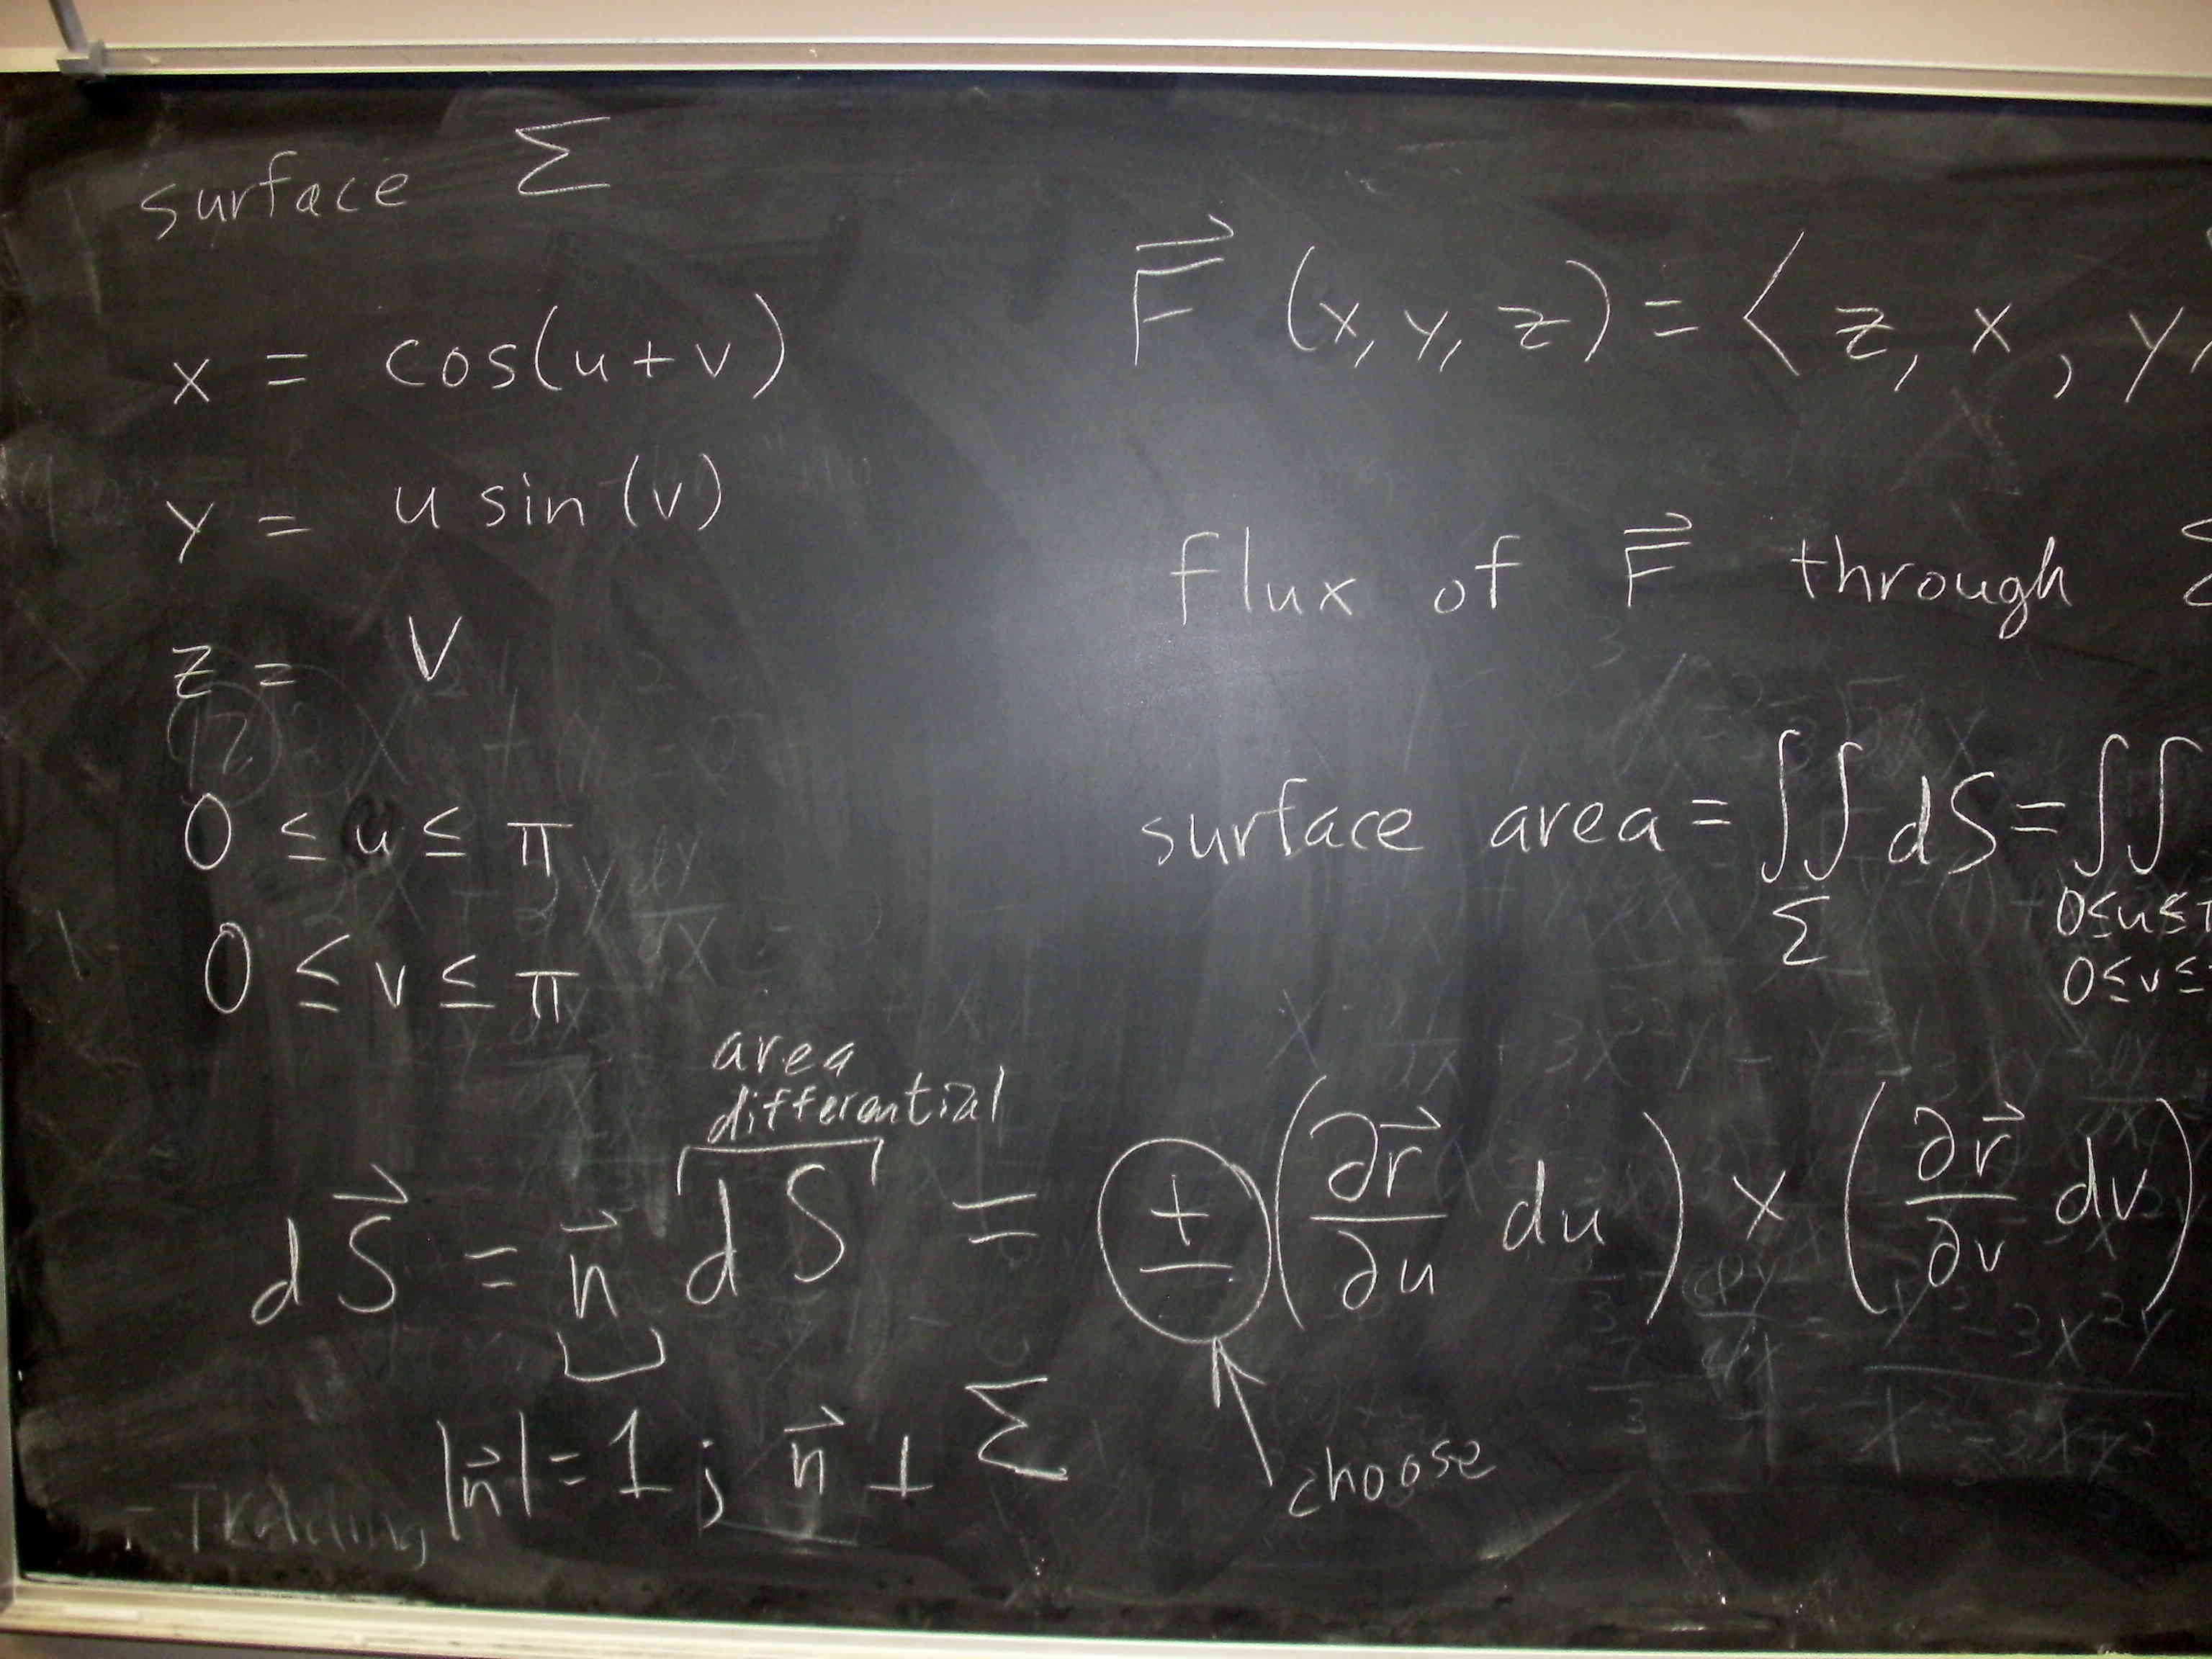 surface Σ
x = cos(u+v)
y = u sin(v)
z = v
0 ≤ u ≤ π
0 ≤ v ≤ π
F⃗ (x, y, z) = ⟨ z, x, y,
flux of F⃗ through Σ
surface area = ∬ dS = ∬
Σ
0≤u≤π
0≤v≤
area
differential
dS⃗ = n⃗ dS = ± (∂r⃗/∂u du) × (∂r⃗/∂v dv)
|n⃗| = 1 ; n⃗ ⊥ Σ
choose